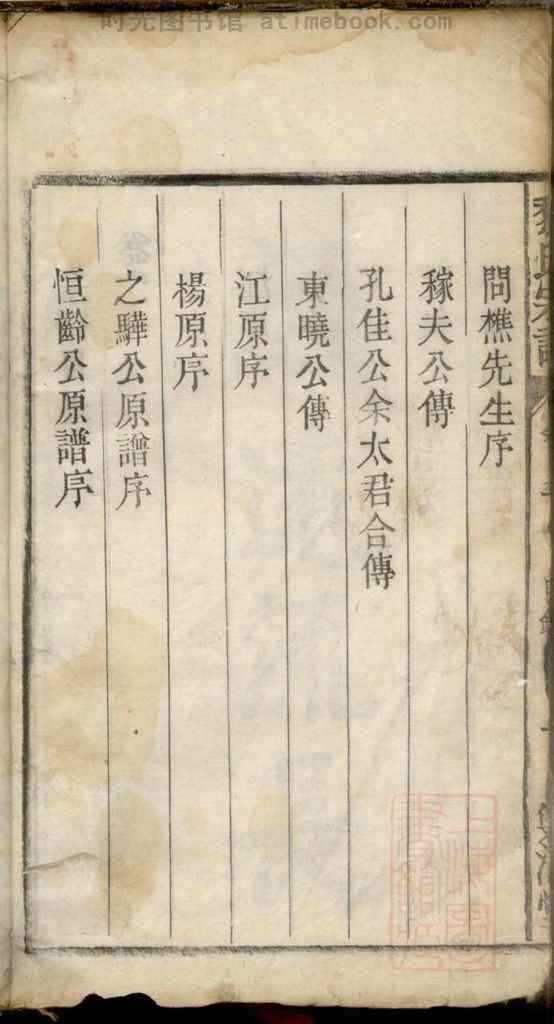 时光图书馆 atimebook.com
問樵先生序
稼夫公傳
孔佳公余太君合傳
東曉公傳
江原序
楊原序
之驊公原譜序
恒齡公原譜序